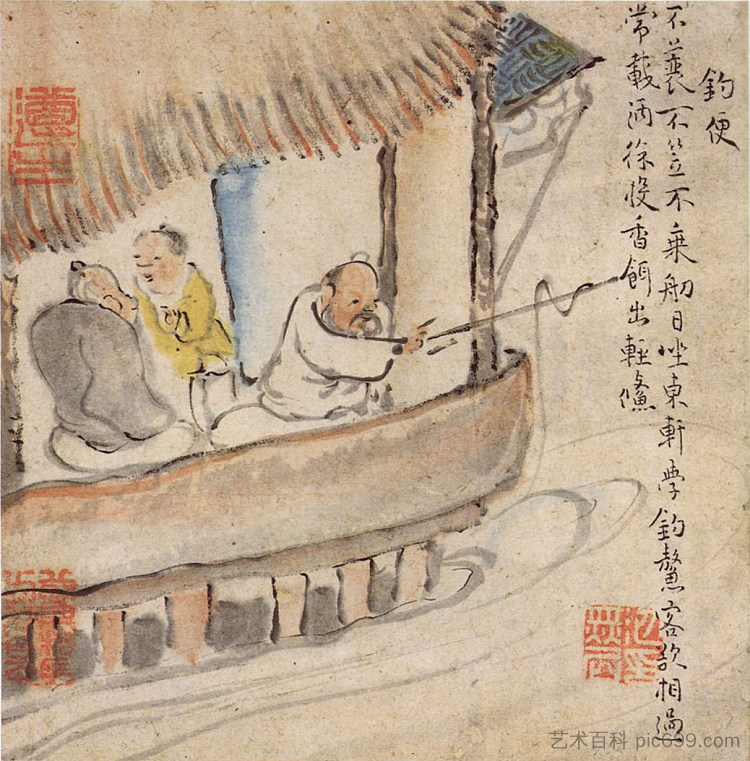 釣便
不蓑不笠不乘舠日坐東軒學釣鰲客欲相過
常載酒徐投香餌出輕鯈
艺术百科 pic699.com